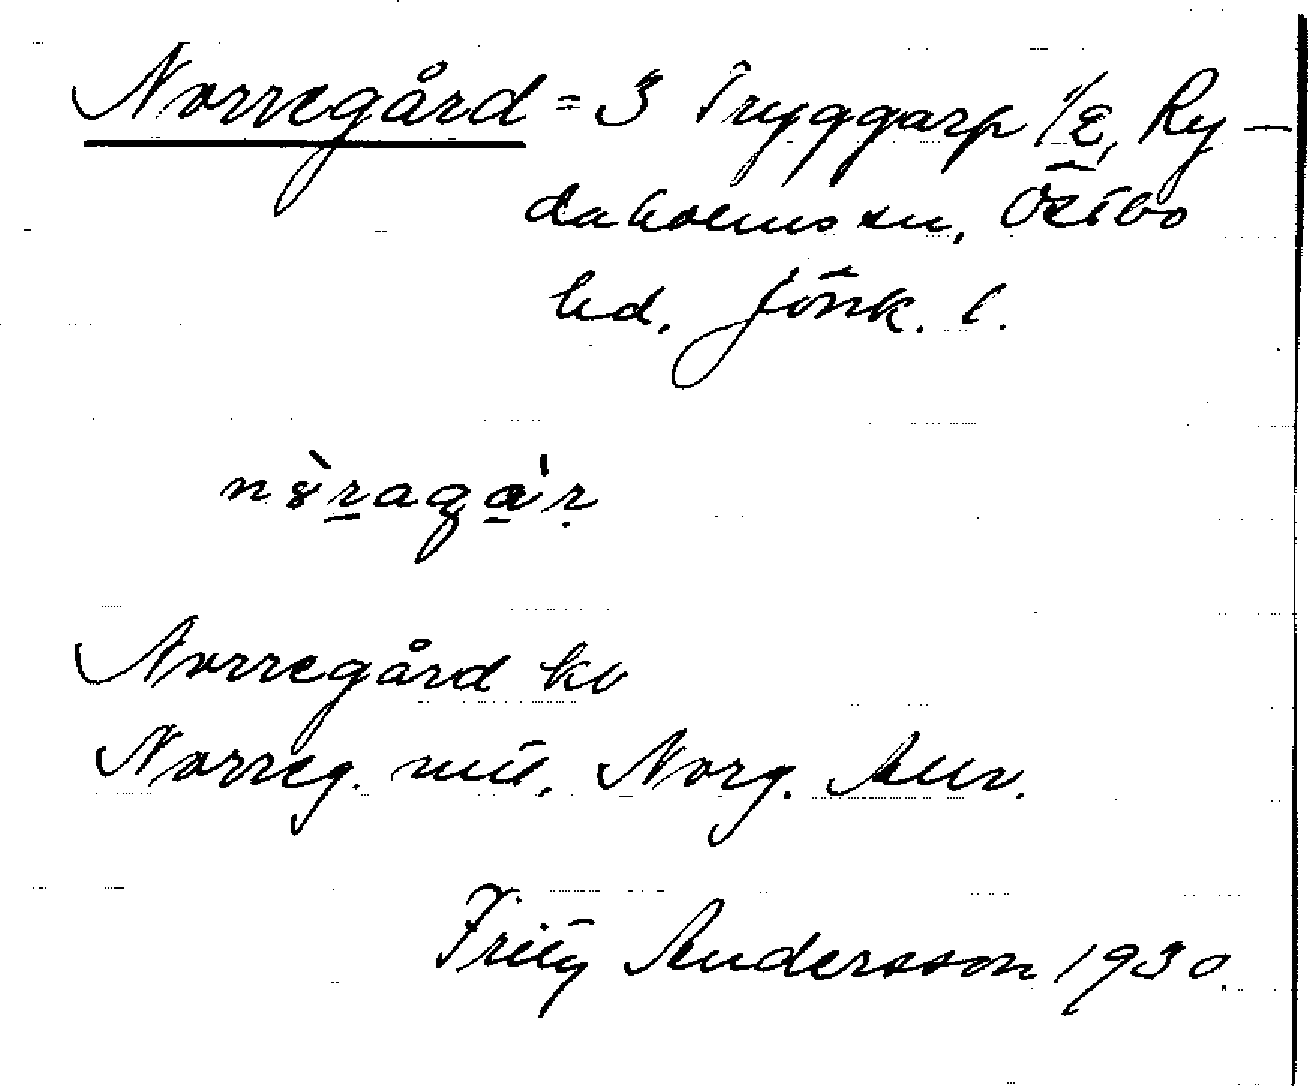 Norregård = 3 Tryggarp 1/2, Ry-
daholms sn, Östbo
hd. Jönk. l.
Norregård ko
Norreg. mtl. Norg.
Fritz Andersson 1930.